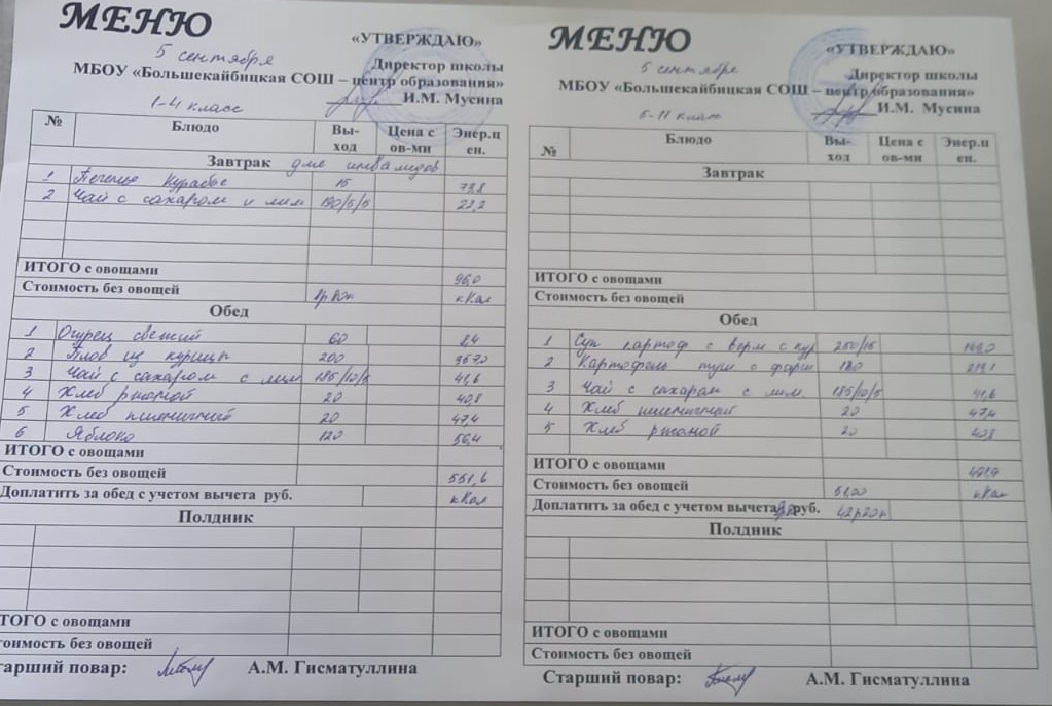 МЕНЮ
5 сентября
«УТВЕРЖДАЮ»
Директор школы
МБОУ «Большекайбицкая СОШ – центр образования»
1-4 класс И.М. Мусина
№ Блюдо Вы-ход Цена с ов-ми Энер.ц ен.
Завтрак для инвалидов
1 Печенье Курабье 15 73,8
2 Чай с сахаром и лим 150/5/5 22,2
ИТОГО с овощами 96,0
Стоимость без овощей кКал
Обед
1 Огурец свежий 60 8,4
2 Плов из курицы 200
3 Чай с сахаром с лим 185/10/5 41,6
4 Хлеб ржаной 20 40,8
5 Хлеб пшеничный 20 47,4
6 Яблоко 120 56,4
ИТОГО с овощами
Стоимость без овощей 551,6
Доплатить за обед с учетом вычета руб. кКал
Полдник
ТОГО с овощами
тоимость без овощей
тарший повар: А.М. Гисматуллина
МЕНЮ
5 сентября
«УТВЕРЖДАЮ»
Директор школы
МБОУ «Большекайбицкая СОШ – центр образования»
5-11 класс И.М. Мусина
№ Блюдо Вы-ход Цена с ов-ми Энер.ц ен.
Завтрак
ИТОГО с овощами
Стоимость без овощей
Обед
1 Суп картоф с верм с кур 250/15
2 Картофель туш с фарш 180
3 Чай с сахаром с лим. 185/10/5 41,6
4 Хлеб пшеничный 20 47,4
5 Хлеб ржаной 20 40,8
ИТОГО с овощами
Стоимость без овощей 51,00 кКал
Доплатить за обед с учетом вычета руб. 42р20к
Полдник
ИТОГО с овощами
Стоимость без овощей
Старший повар: А.М. Гисматуллина